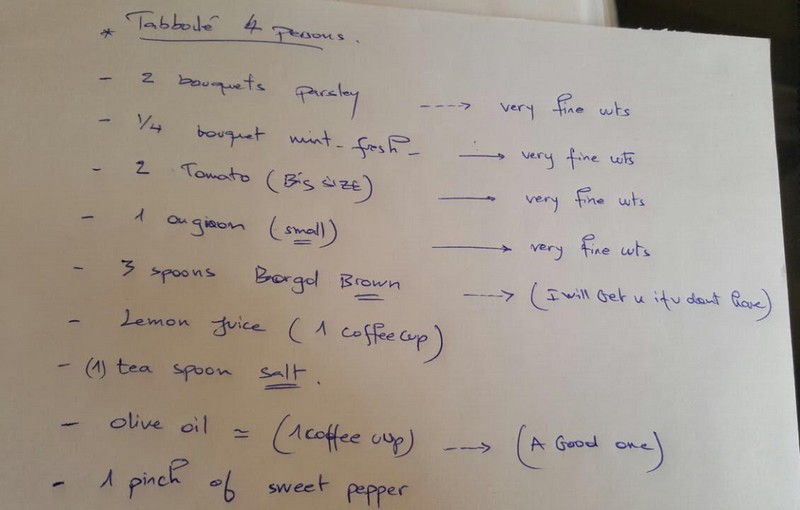 * Tabboulé 4 persons.
- 2 bouquets parsley ----> very fine cuts
- 1/4 bouquet mint - fresh - —> very fine cuts
- 2 Tomato (Big size) —> very fine cuts
- 1 (small) —> very fine cuts
- 3 spoons Borgol Brown ----> (I will Get u if u dont have)
- Lemon juice (1 coffee cup)
- (1) tea spoon salt.
- olive oil ≃ (1 coffee cup) ---> (A Good one)
- 1 pinch of sweet pepper